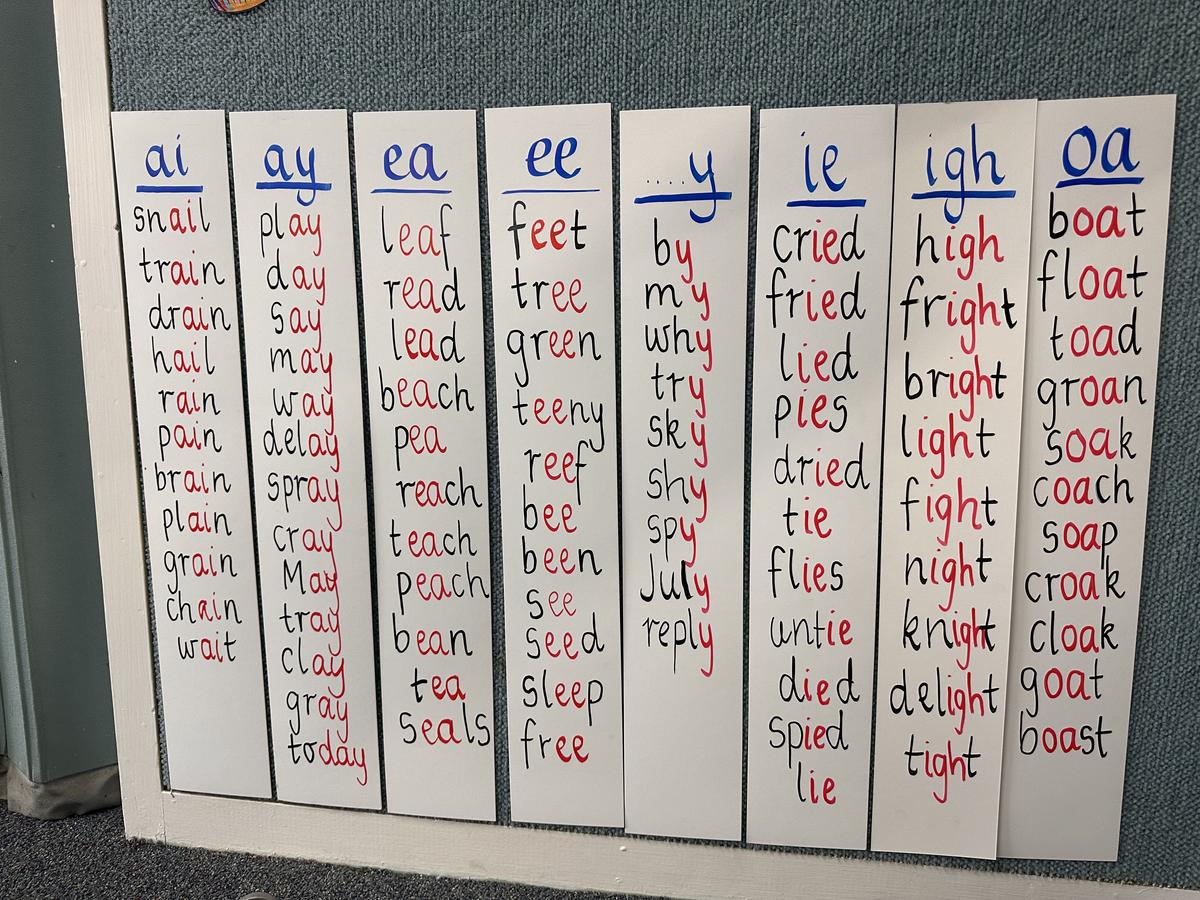 ai
snail
train
drain
hail
rain
pain
brain
plain
grain
chain
wait
ay
play
day
say
may
way
delay
spray
cray
May
tray
clay
gray
today
ea
leaf
read
lead
beach
pea
reach
teach
peach
bean
tea
seals
ee
feet
tree
green
teeny
reef
bee
been
see
seed
sleep
free
....y
by
my
why
try
sky
shy
spy
July
reply
ie
cried
fried
lied
pies
dried
tie
flies
untie
died
spied
lie
igh
high
fright
bright
light
fight
night
knight
delight
tight
oa
boat
float
toad
groan
soak
coach
soap
croak
cloak
goat
boast